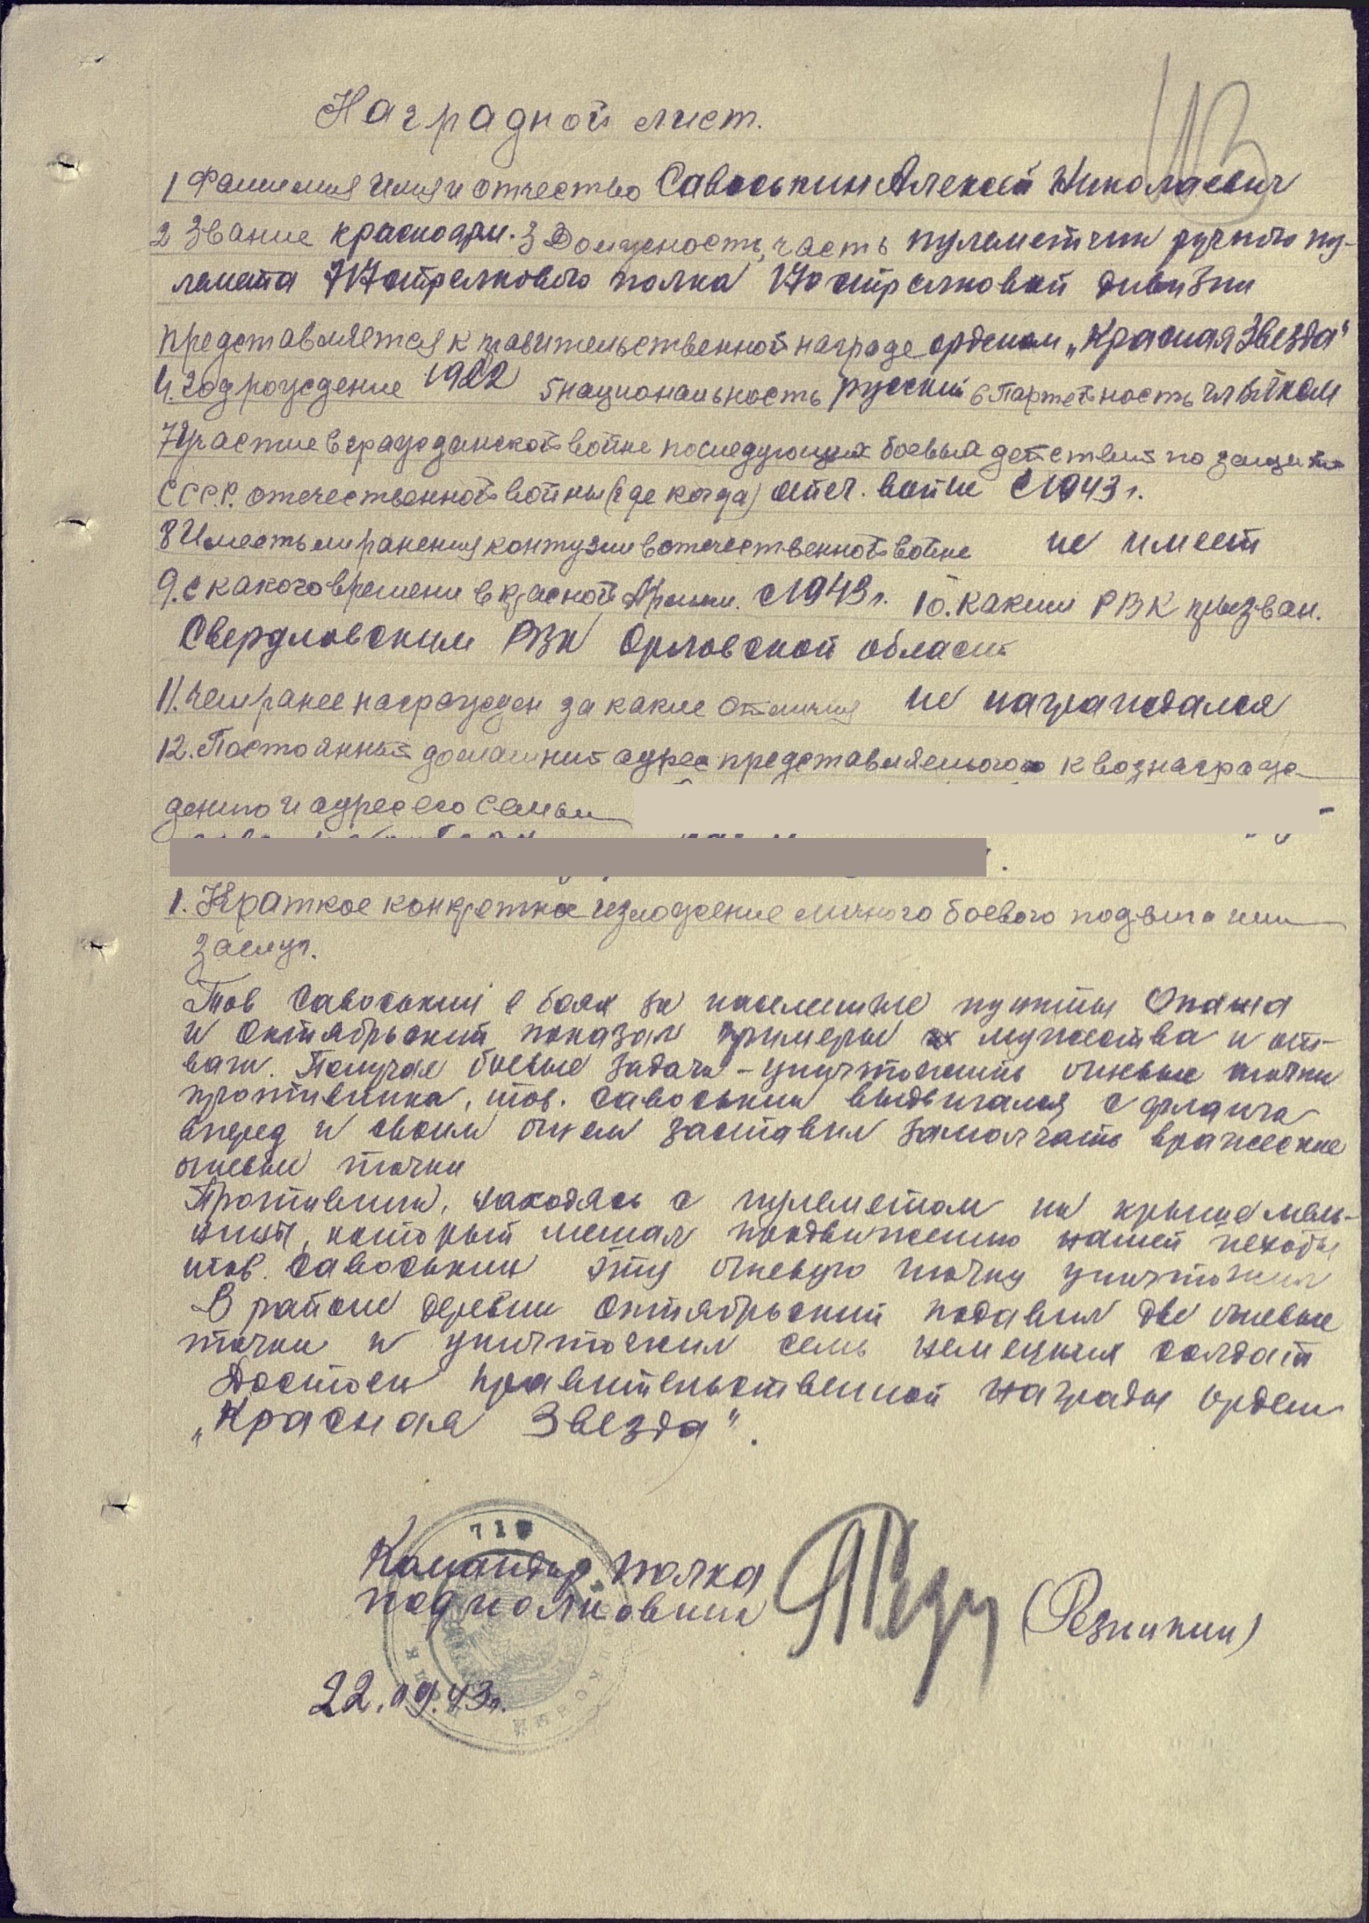 113
Наградной лист.
1 Фамилия имя и отчество Савоськин Алексей Николаевич
2 Звание красноарм. 3 Должность, часть пулеметчик ручного пу-
лемета 717 стрелкового полка 170 стрелковой дивизии
представляется к правительственной награде орденом „Красная Звезда"
4. год рождение 1922 5 национальность русский 6 Партейность чл ВЛКСМ
7 Участие в гражданской войне последующих боевых действиях по защите
СССР. отечественной войны (где когда) отеч. войне с 1943 г.
8 Имеет ли ранения контузии в отечественной войне не имеет
9. с какого времени в красной Армии. с 1943 г. 10. каким РВК призван.
Свердловским РВК Орловской области
11. чем ранее награжден за какие отличия не награждался
12. Постоянный домашний адрес представляемого к вознаграж
дению и адрес его семьи
1. Краткое конкретное изложение личного боевого подвига или
заслуг.
Тов Савоськин в боях за населенные пункты Опажа
и Октябрьский показал примеры мужества и от-
ваги. Получая боевые задачи - уничтожить огневые точки
противника, тов. Савоськин выдвигался с фланга
вперед и своим огнем заставил замолчать вражеские
огневые точки
Противник, находясь с пулеметом на крыше мель-
ницы, который мешал продвижению нашей пехоты
тов. Савоськин эту огневую точку уничтожил
В районе деревни Октябрьский подавил две огневые
точки и уничтожил семь немецких солдат
Достоен правительственной награды орден
„Красная Звезда".
717
Командир полка
подполковник (Резникин)
22.09.43г.